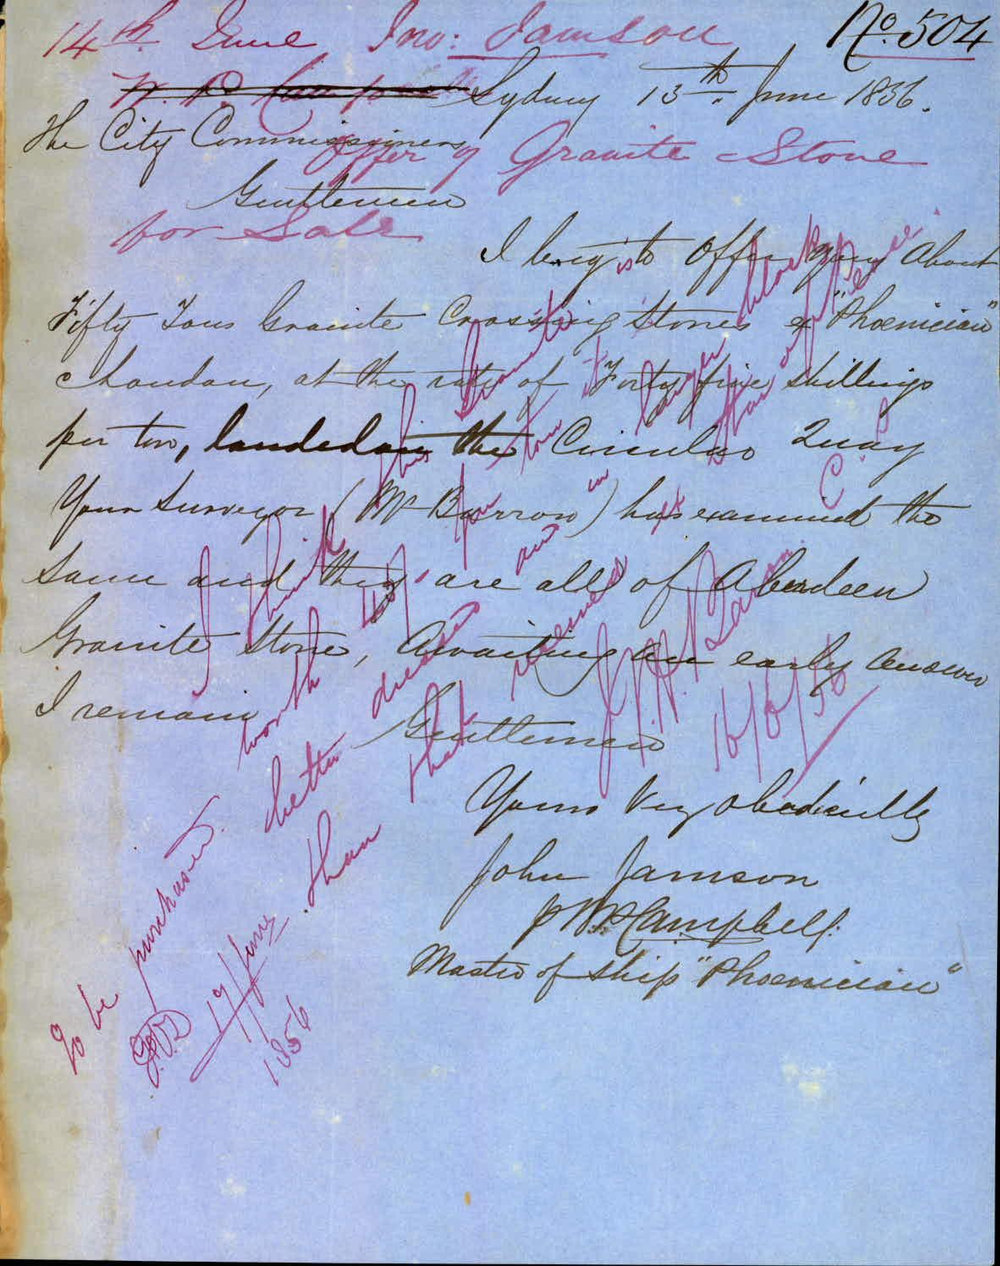 14th June Jno: Jamson No. 504
W. P. Campbell
Sydney 13th June 1856.
The City Commissioners
Offer of Granite Stone
for Sale
Gentlemen
I beg to offer you About
Fifty Tons Granite Crossing Stones ex "Phoenician"
at the rate of Forty five shillings
per ton, landed on the Circular Quay
Your Surveyor (Mr Burrow) has examined the
same and they are all of Aberdeen
Granite Stone, Awaiting an early answer
I remain
Gentlemen
Yours Very obediently
John Jamson
p W.P. Campbell.
Master of Ship "Phoenician"
I think this Granite is
worth 45/ per ton it
better dressed and in larger blocks
than that used at
C. Quay
16/6/56
To be purchased
17 June
1856